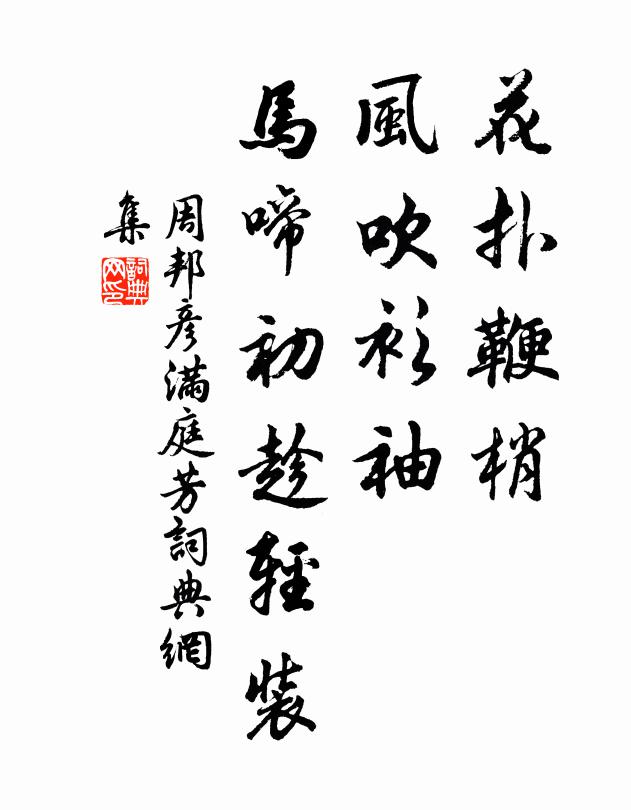 花扑鞭梢
風吹衫袖
馬啼初趁輕裝
周邦彦滿庭芳詞典網
集
詞典
网印